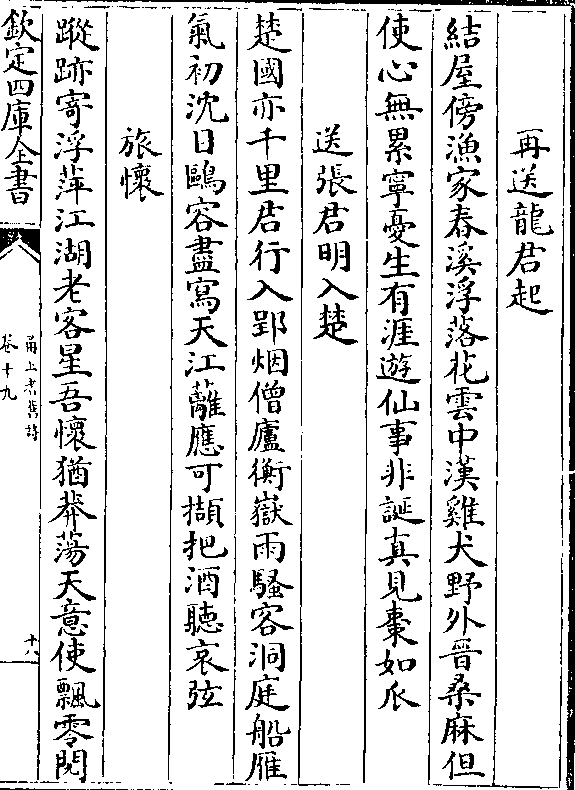 再送龍君起
結屋傍漁家春溪浮落花雲中漢雞犬野外晉桑麻但
使心無累寧憂生有涯遊仙事非誕真見棗如瓜
送張君明入楚
楚國亦千里君行入郢烟僧廬衡嶽雨騷客洞庭船雁
氣初沈日鷗容盡寫天江蘺應可擷把酒聽哀弦
旅懷
蹤跡寄浮萍江湖老客星吾懷猶莽蕩天意使飄零閱
欽定四庫全書
甬上耆舊詩
卷十九
十八